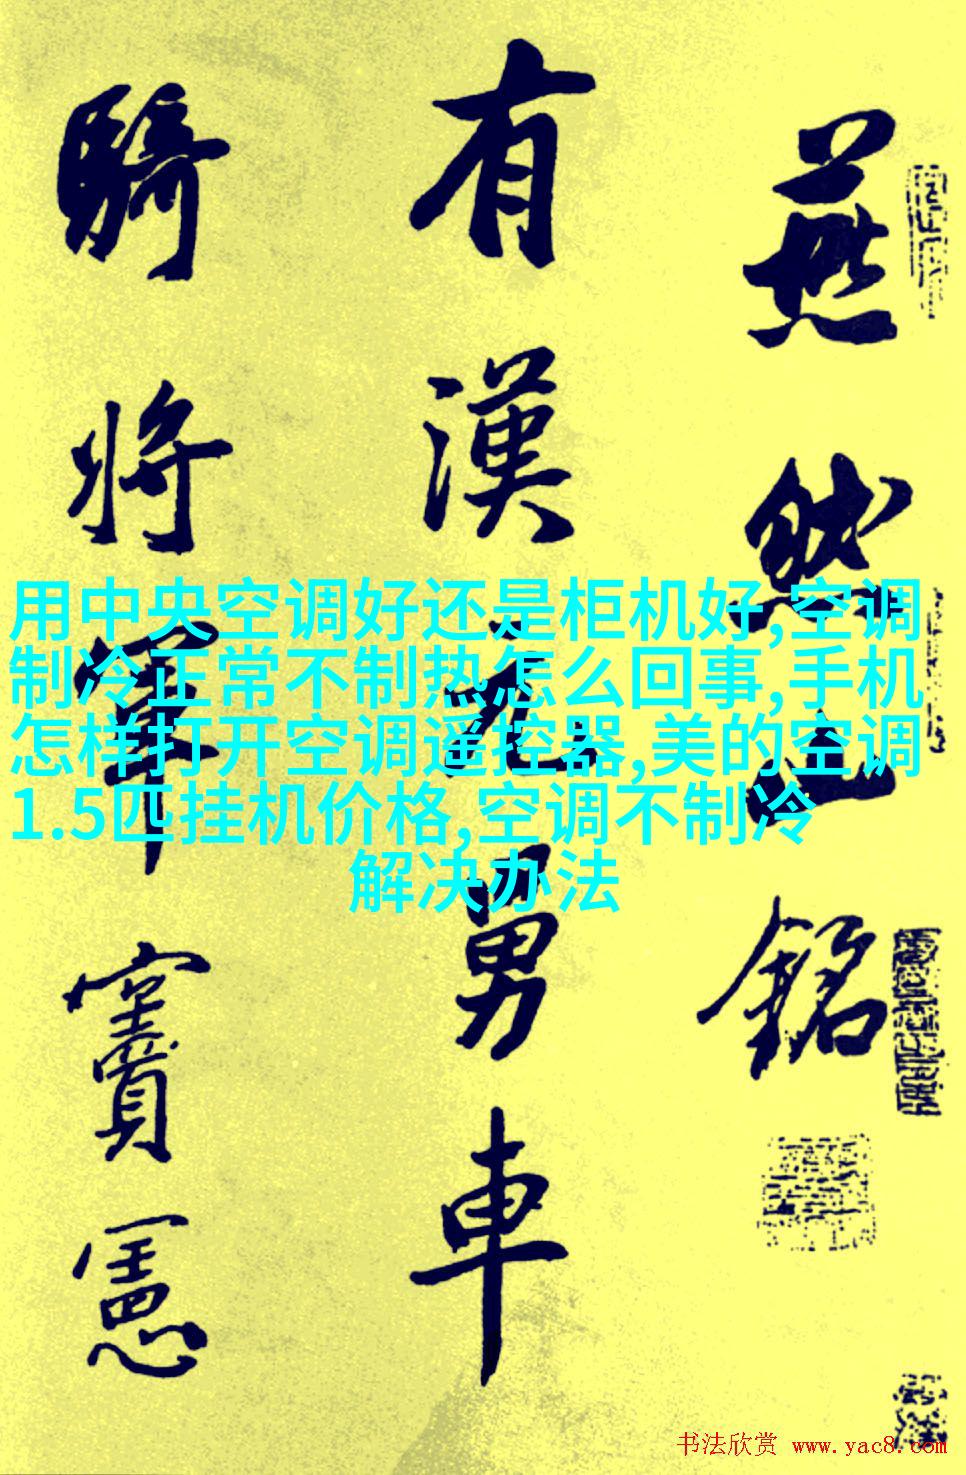 燕然山銘
有漢元舅車
騎將軍竇憲
用中央空调好还是柜机好,空调
制冷正常不制热怎么回事,手机
怎样打开空调遥控器,美的空调
1.5匹挂机价格,空调不制冷
解决办法
书法欣赏 www.yac8.com